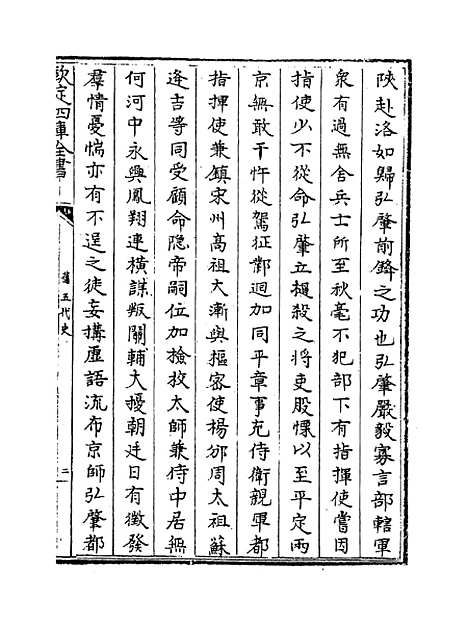 陜赴洛如歸弘肇前鋒之功也弘肇嚴毅寡言部轄軍
衆有過無舍兵士所至秋毫不犯部下有指揮使嘗因
指使少不從命弘肇立檛殺之將吏股慄以至平定兩
京無敢干忤從駕征鄴迴加同平章事充侍衛親軍都
指揮使兼鎮宋州髙祖大漸與樞密使楊邠周太祖蘇
逄吉等同受顧命隐帝嗣位加檢挍太師兼侍中居無
何河中永興鳳翔連橫謀叛關輔大擾朝廷日有徴發
羣情憂惴亦有不逞之徒妄搆虛語流布京師弘肇都
欽定四庫全書
舊五代史
二